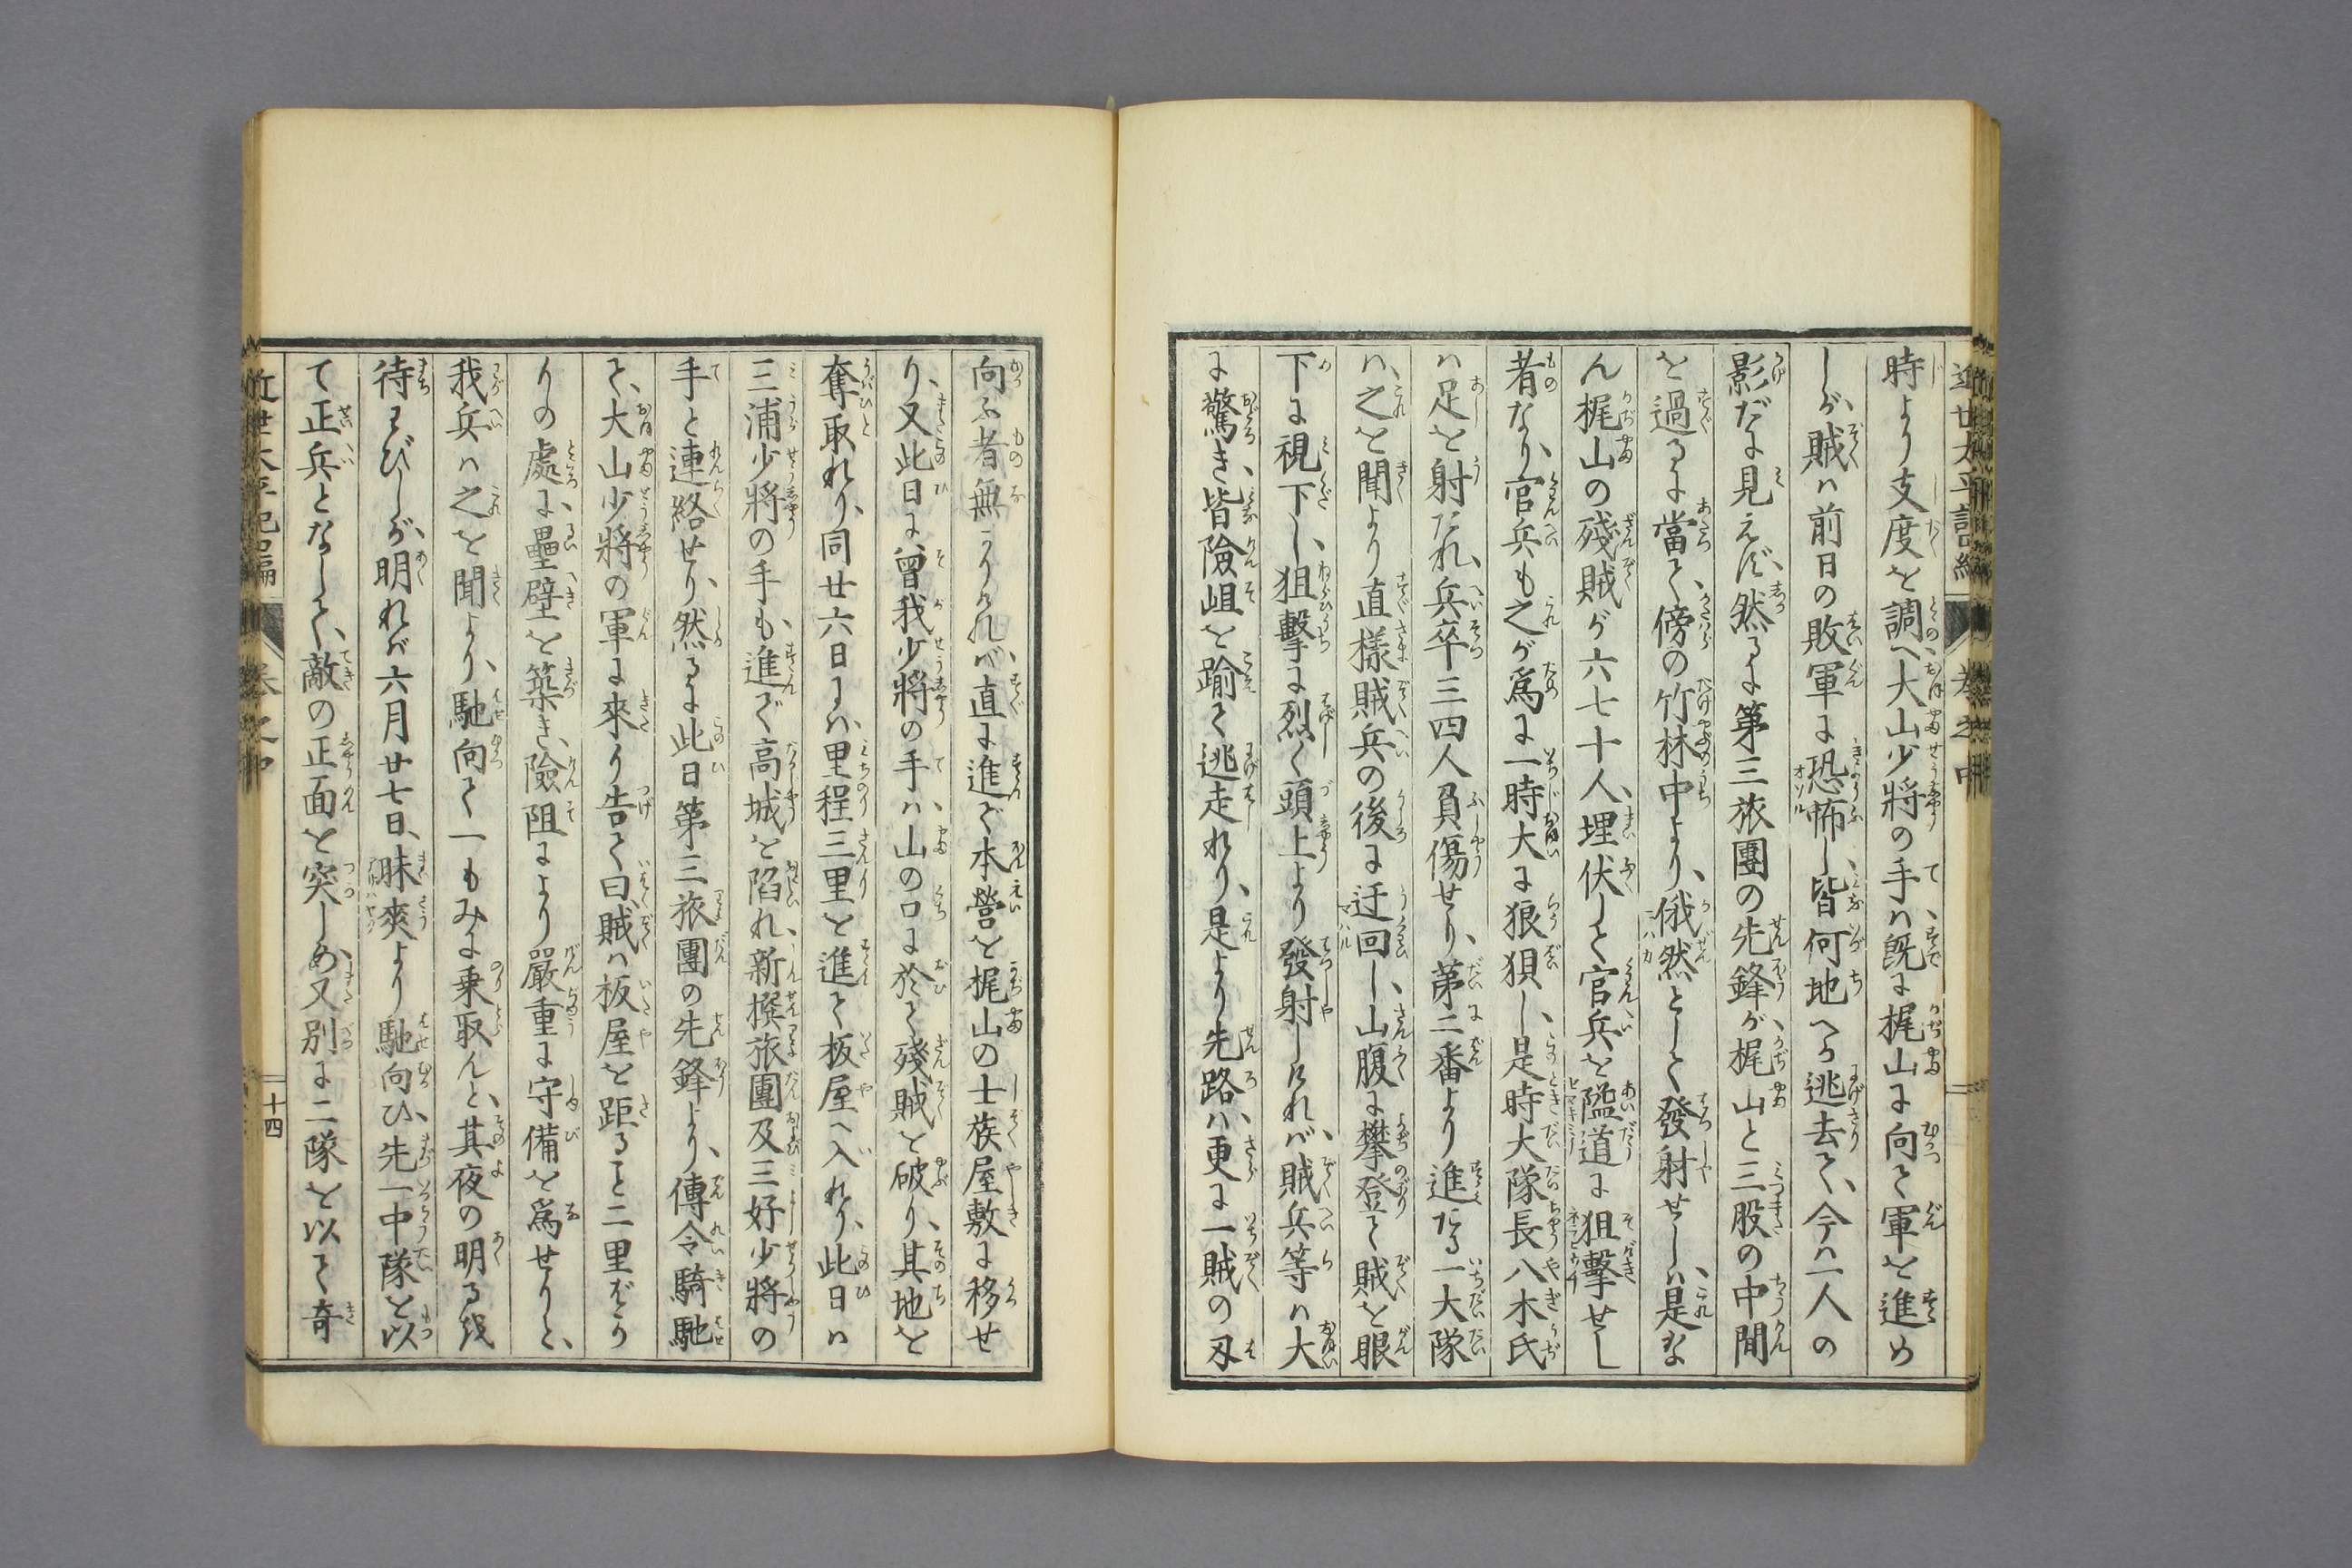 時より支度を調へ大山少將の手ハ、既に梶山に向て軍を進め
しが、賊ハ前日の敗軍に恐怖し、皆何地へか逃去て、今ハ一人の
影だに見えず、然るに第三旅團の先鋒が、梶山と三股の中間
を過るに當て、傍の竹林中より、俄然として發射せしハ、是な
ん梶山の殘賊が六七十人、埋伏して官兵を隘道に狙擊せし
者なり、官兵も之が爲に一時大に狼狽し、是時大隊長八木氏
ハ足を射られ、兵卒三四人負傷せり、第二番より進たる一大隊
ハ、之を聞より直樣賊兵の後に迂回し、山腹に攀登て賊を眼
下に視下し、狙擊に烈く頭上より發射しければ、賊兵等ハ大
に驚き、皆險岨を踰て逃走れり、是より先路ハ、更に一賊の刄
向ふ者無かりければ、直に進で本營を梶山の士族屋敷に移せ
り、又此日に、曾我少將の手ハ、山の口に於て殘賊を破り、其地を
奪取れり、同廿六日にハ、里程三里を進て板屋へ入れり、此日ハ
三浦少將の手も、進で高城を陷れ、新撰旅團及三好少將の
手と連絡せり、然るに此日第三旅團の先鋒より、傳令騎馳
て、大山少將の軍に來り告て曰、賊ハ板屋を距ると二里ばか
りの處に、壘壁を築き、險阻により嚴重に守備を爲せりと、
我兵ハ之を聞より、馳向て一もみに乗取んと、其夜の明るを
待わびしが、明れば六月廿七日、昧爽より馳向ひ、先一中隊を以
て正兵となして、敵の正面を突しめ、又別に二隊を以て奇
十四